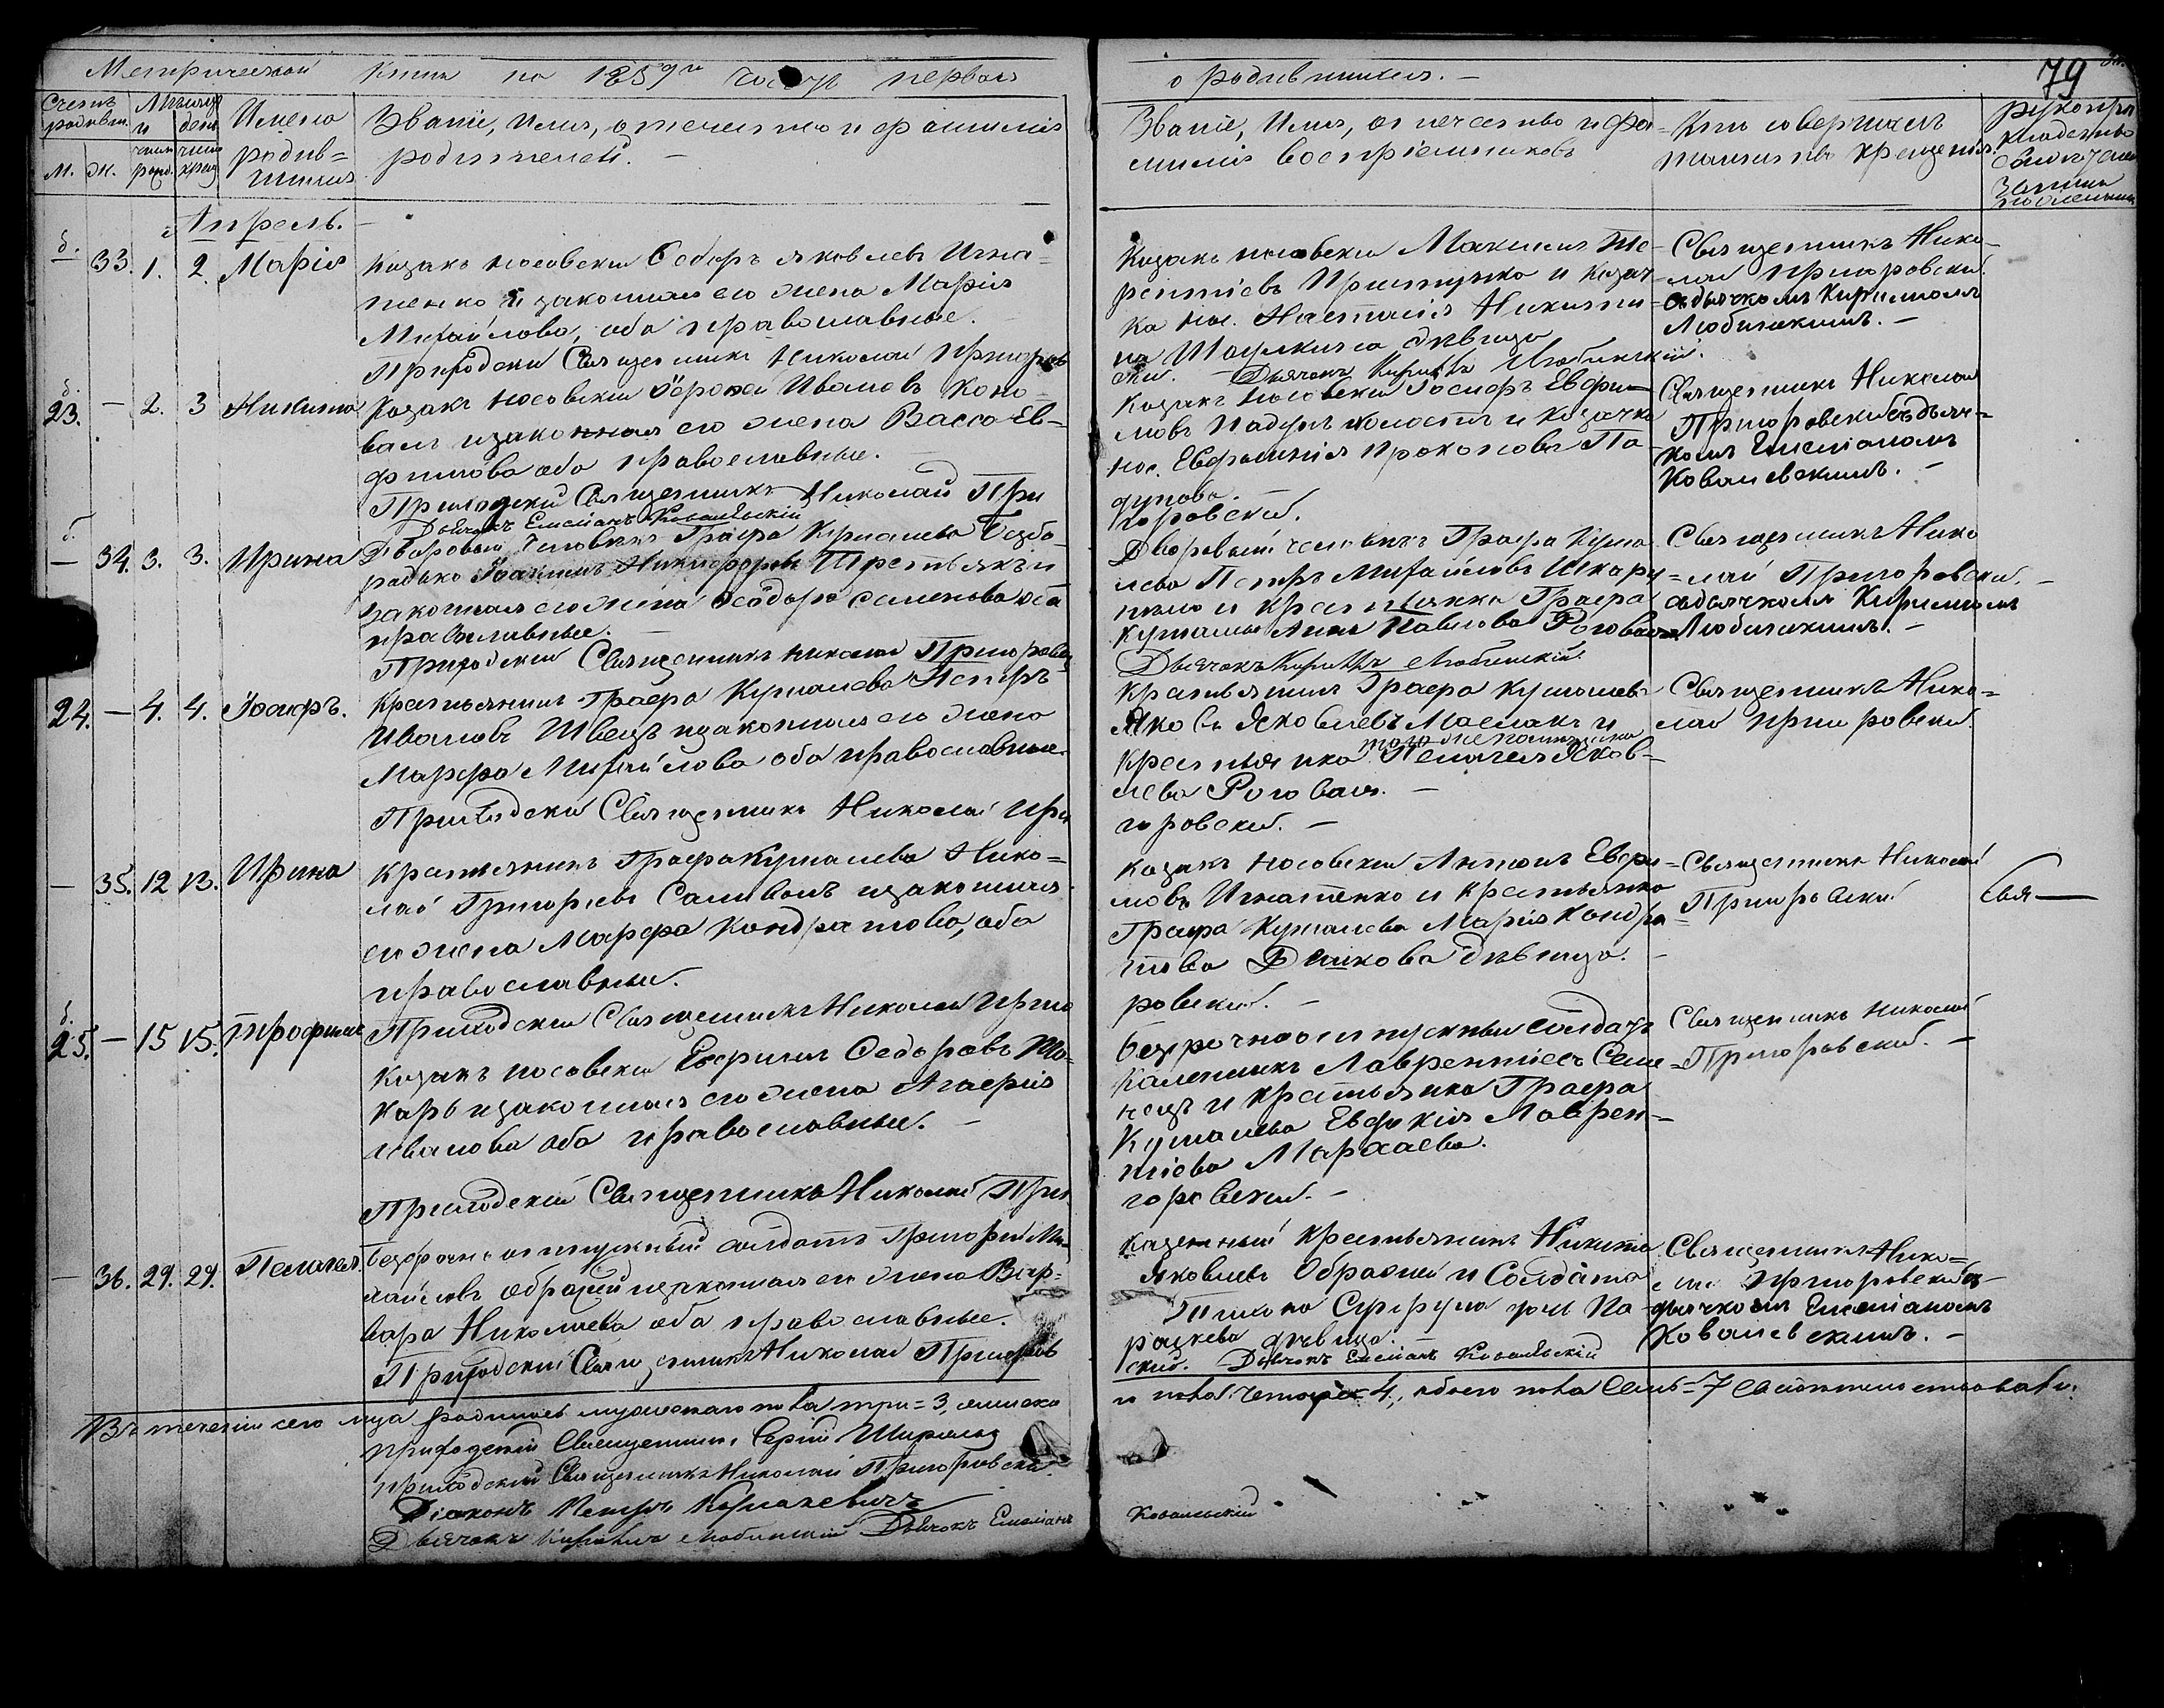 Метрической книги на 1859й годъ часть первая
о родившихся. —
79
Счетъ родивш.
М. Ж.
Мѣсяцъ и день
числ рожд.
числ крещ
Имена родив=
шихся
Званіе, имя, отчество и фамилія
родителей. —
Званіе, имя, отчество и фа=
милія воспріемниковъ
Кто совершалъ
таинство крещенія
Апрель. —
33. 1. 2. Марія
Козакъ носовскій Ѳеодоръ Яковлевъ Игна=
тенко и законная его жена Марія
Михайлова, оба православные. —
Приходскій Священникъ Николай Пригоров
Козакъ носовскій Максимъ Те=
рентіевъ Приступко и козач
ка нос. Настасія Никити
на дѣвица
скій. — Дьячокъ Кириллъ Любинскій.
Священникъ Нико=
лай Пригоровскій
съ дьячкомъ Кириломъ
Любинскимъ. —
23. — 2. 3 Никита
Козакъ носовскій Иванов Коно=
валъ и законная его жена Васса Ев=
фимова оба православные. —
Приходскій Священникъ Николай При
Дьячокъ Емеліанъ Ковалевскій
Козакъ Носовскій Іосифъ Евфи=
мовъ Падунъ холостъ и козачка
нос. Евфросинія Прокопова Па=
дунова.
горовскій.
Священникъ Николай
Пригоровскій съ дьяч=
комъ Емеліаномъ
Ковалевскимъ. —
— 34. 3. 3. Ирина
Дворовый человѣкъ Графа Кушелева Безбо=
родько Іоакимъ Никифоровъ Третьякъ и
законная его жена Ѳеодора Семенова оба
православные. —
Приходскій Священникъ Николай Пригоровск
Дворовый человѣкъ Графа Куше
лева Петръ Михайловъ
и крестьянка Графа
Кушелева Анна Павлова Роговая
Дьячокъ Кириллъ Любинскій.
Священникъ Нико
=лай Пригоровскій. —
съ дьячкомъ Кириломъ
Любинскимъ. —
24. — 4. 4. Іосифъ.
Крестьянинъ Графа Кушелева Петръ
Ивановъ Швецъ и законная его жена
Марфа Михайлова оба православные.
Приходскій Священникъ Николай При
Крестьянинъ Графа Кушелева
Яковъ Яковлевъ Маслакъ и
того же помѣщика
крестьянка Пелагея Яков=
лева Роговая. —
горовскій. —
Священникъ Нико=
лай Пригоровскій
— 35. 12 13. Ирина
Крестьянинъ Графа Кушелева Нико=
лай Григорьевъ Саливонъ и законная
его жена Марфа Кондратова, оба
православные.
Приходскій Священникъ Николай Приго
Козакъ носовскій Антонъ Евфи=
мовъ Игнатенко и крестьянка
Графа Кушелева Марія Кондра=
това Дткова дѣвица. —
ровскій. —
Священникъ Николай
Пригоровскій
25. — 15 15. Трофимъ
Козакъ носовскій Евфимъ Ѳедоровъ То=
карь и законная его жена Агафія
Иванова оба православные. —
Приходскій Священникъ Николай При
Безсрочноотпускный солдатъ
Каленикъ Лаврентіевъ Семе=
нецъ и крестьянка Графа
Кушелева Евдокія Лаврен=
тіева
горовскій. —
Священникъ Николай
Пригоровскій. —
— 36. 29. 29. Пелагея.
Безсрочноотпускный солдатъ Григорій Ми=
хайловъ Обрасцій и законная его жена Вар=
вара Николаева оба православные.
Приходскій Священникъ Николай Пригоров
Казенный крестьянинъ Никита
Яковлевъ Обрасцій и Солдата
Тихона дочь Па=
раскева дѣвица.
скій. Дьячокъ Емеліанъ Ковалевскій
Священникъ Нико=
лай Пригоровскій съ
дьячкомъ Емеліаномъ
Ковалевскимъ. —
Въ теченіи сего м-ца родилось мужескаго пола три=3, женска
го пола четыре 4., обоего пола Семь=7 Свидѣтельствовали.
Приходскій Священникъ
Приходскій Священникъ Николай Пригоровскій.
Діаконъ Петръ
Дьячокъ Кириллъ Любинскій Дьячокъ Емеліанъ
Ковалевскій